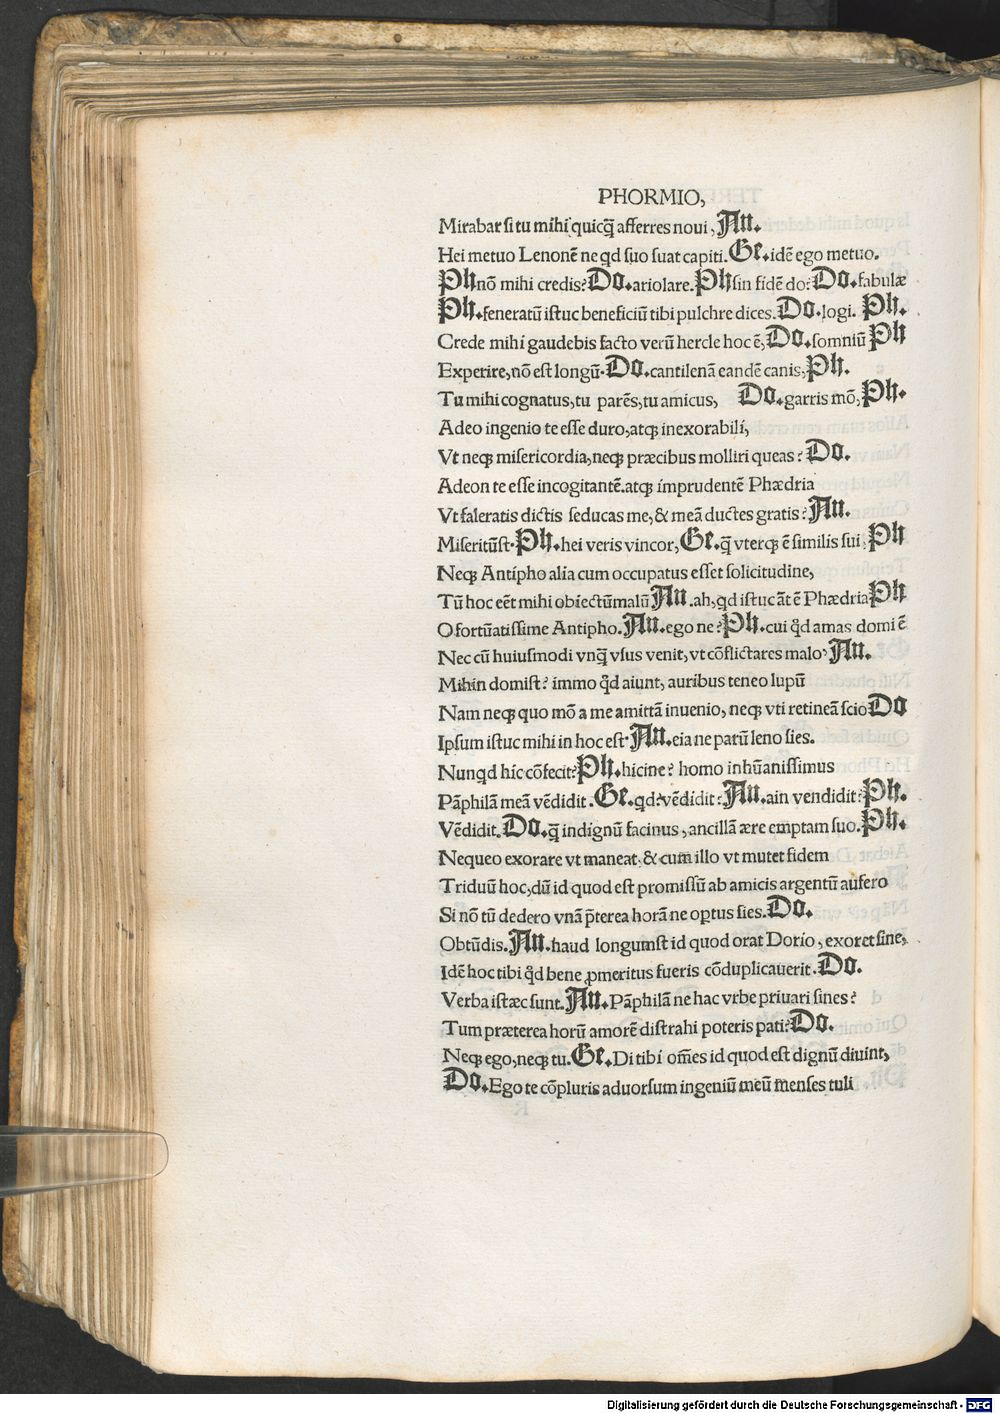 PHORMIO,
Mirabar si tu mihi quicq̃ afferres noui, An.
Hei metuo Lenonẽ ne qd suo suat capiti. Ge. idẽ ego metuo.
Ph nõ mihi credis? Do. ariolare. Ph sin fidẽ do? Do. fabulæ
Ph. feneratũ istuc beneficiũ tibi pulchre dices. Do. logi. Ph.
Crede mihi gaudebis facto verũ hercle hoc ẽ, Do. somniũ Ph
Experire, nõ est longũ. Do. cantilenã eandẽ canis, Ph.
Tu mihi cognatus, tu parẽs, tu amicus, Do. garris mõ, Ph.
Adeo ingenio te esse duro, atq; inexorabili,
Vt neq; misericordia, neq; præcibus molliri queas? Do.
Adeon te esse incogitantẽ. atq; imprudentẽ Phædria
Vt faleratis dictis seducas me, & meã ductes gratis? An.
Miseritũst. Ph. hei veris vincor, Ge. q̃ vterq; ẽ similis sui, Ph
Neq; Antipho alia cum occupatus esset solicitudine,
Tũ hoc eẽt mihi obiectũ malũ An. ah, qd istuc ãt ẽ Phædria Ph
O fortũatissime Antipho. An. ego ne? Ph. cui q̃d amas domi ẽ
Nec cũ huiusmodi vnq̃ vsus venit, vt cõflictares malo, An.
Mihin domist? immo q̃d aiunt, auribus teneo lupũ
Nam neq; quo mõ a me amittã inuenio, neq; vti retineã scio Do
Ipsum istuc mihi in hoc est. An. eia ne parũ leno sies.
Nunqd hic cõfecit? Ph. hicine? homo inhũanissimus
Pãphilã meã vẽdidit. Ge. qd? vẽdidit? An. ain vendidit? Ph.
Vẽdidit. Do. q̃ indignũ facinus, ancillã ære emptam suo. Ph.
Nequeo exorare vt maneat, & cum illo vt mutet fidem
Triduũ hoc, dũ id quod est promissũ ab amicis argentũ aufero
Si nõ tũ dedero vnã p̃terea horã ne optus sies. Do.
Obtũdis. An. haud longumst id quod orat Dorio, exoret sine,
Idẽ hoc tibi q̃d bene ꝓmeritus fueris cõduplicauerit. Do.
Verba istæc sunt. An. Pãphilã ne hac vrbe priuari sines?
Tum præterea horũ amorẽ distrahi poteris pati? Do.
Neq; ego, neq; tu. Ge. Di tibi om̃es id quod est dignũ diuint,
Do. Ego te cõpluris aduorsum ingeniũ meũ menses tuli
Digitalisierung gefördert durch die Deutsche Forschungsgemeinschaft - DFG